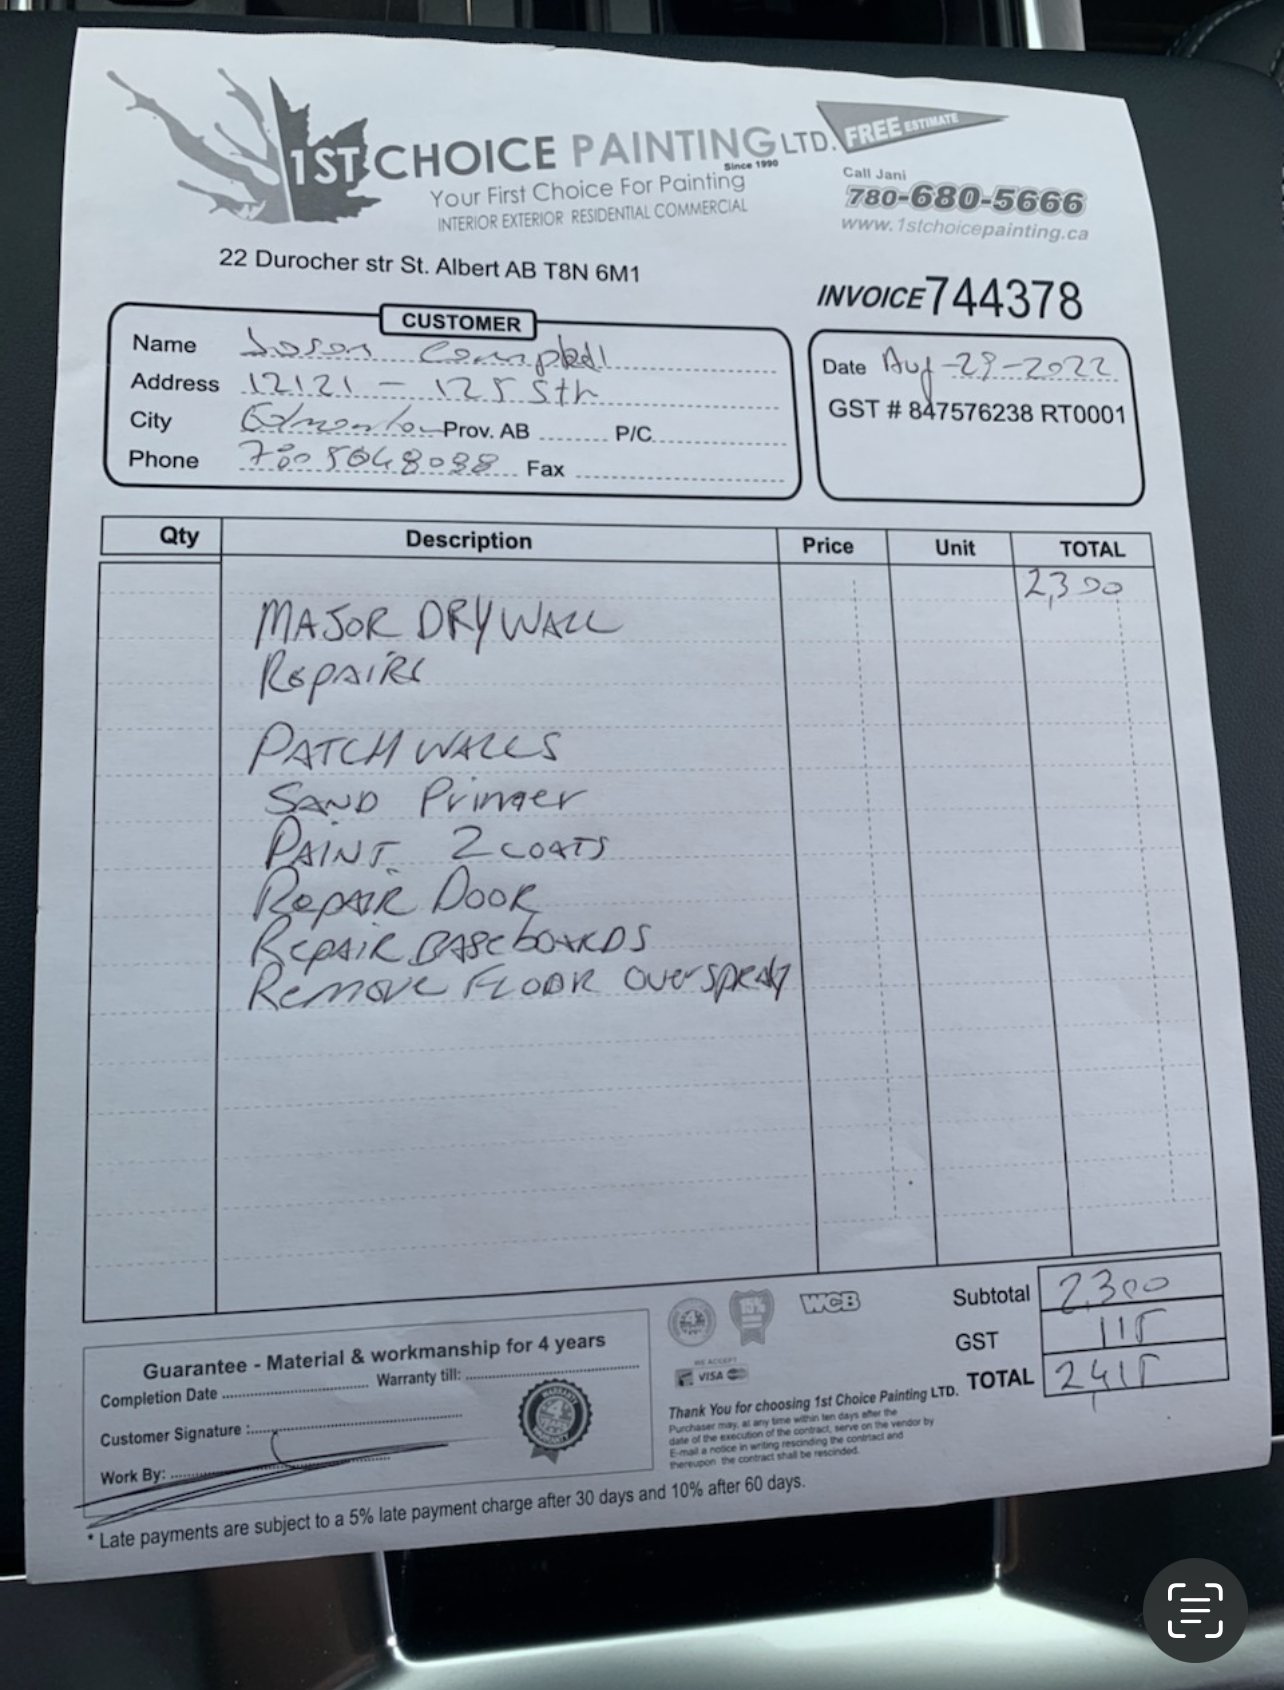 1ST CHOICE PAINTING LTD.
Since 1990
Your First Choice For Painting
INTERIOR EXTERIOR RESIDENTIAL COMMERCIAL
FREE ESTIMATE
Call Jani
780-680-5666
www.1stchoicepainting.ca
22 Durocher str St. Albert AB T8N 6M1
INVOICE 744378
CUSTOMER
Name
Address 12121 - 125 Sth
City Edmonton Prov. AB P/C
Phone Fax
Date Aug-29-2022
GST # 847576238 RT0001
Qty Description Price Unit TOTAL
2,300
MAJOR DRYWALL
REPAIRS
PATCH WALLS
SAND Primer
PAINT 2 COATS
REPAIR DOOR
REPAIR BASEBOARDS
REMOVE FLOOR OVERSPRAY
Subtotal 2,300
GST 115
TOTAL 2,415
Guarantee - Material & workmanship for 4 years
Completion Date Warranty till:
Customer Signature :
Work By:
WARRANTY
4
15%
WCB
WE ACCEPT
VISA
Thank You for choosing 1st Choice Painting LTD.
Purchaser may, at any time within ten days after the
date of the execution of the contract, serve on the vendor by
E-mail a notice in writing rescinding the contract and
thereupon the contract shall be rescinded.
* Late payments are subject to a 5% late payment charge after 30 days and 10% after 60 days.